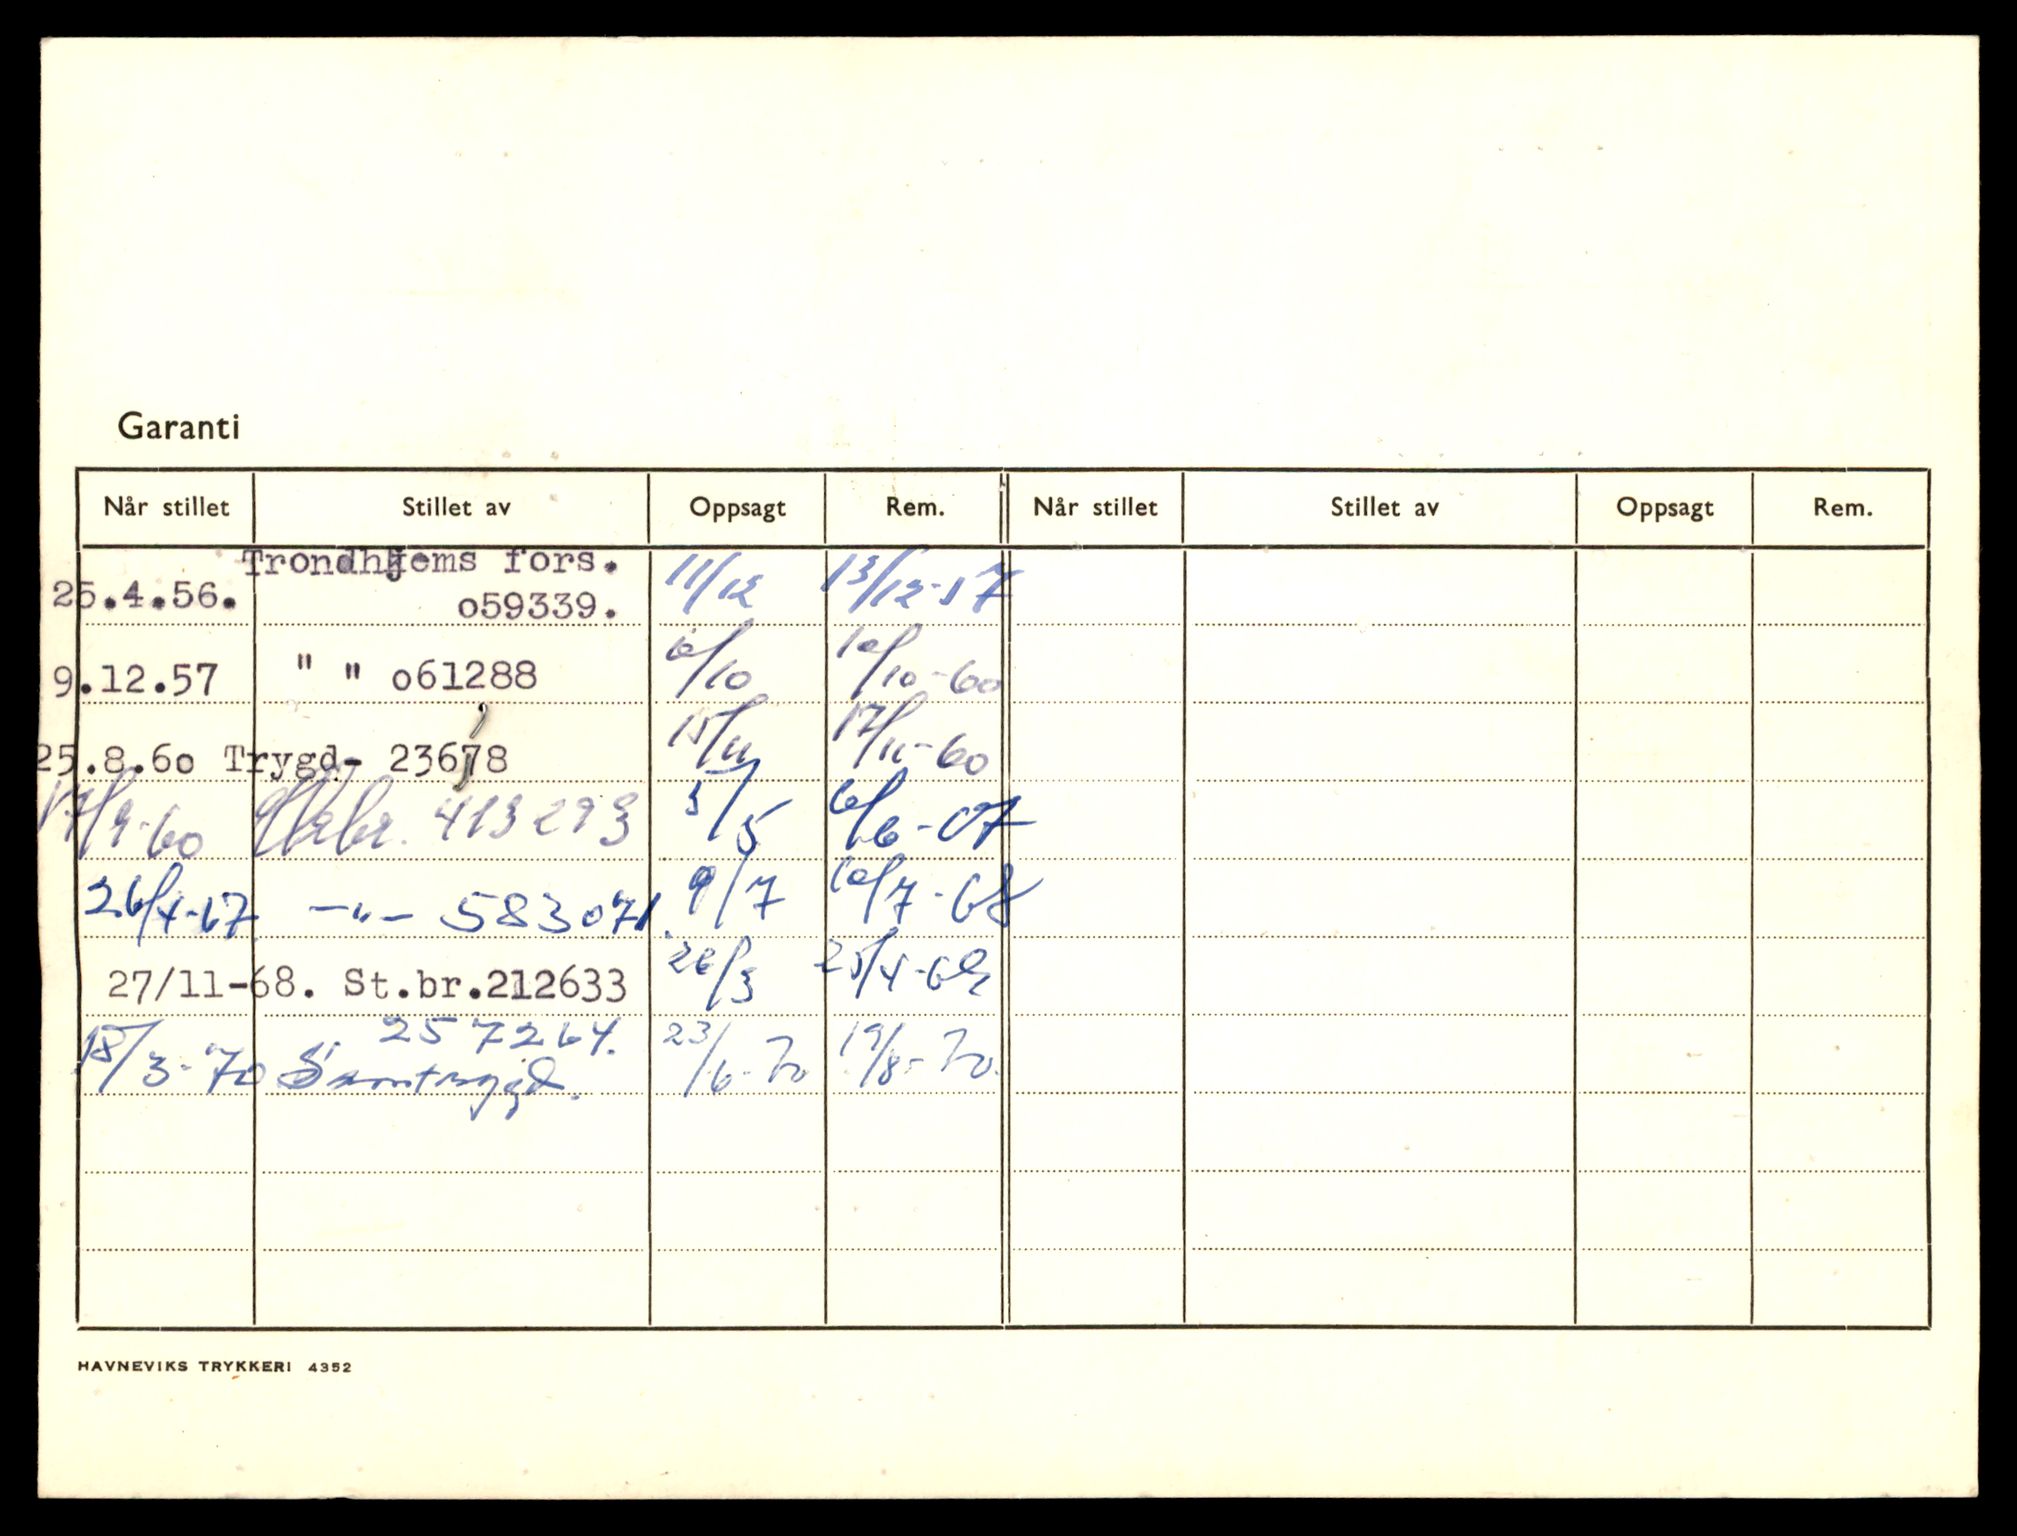 Garanti
Når stillet Stillet av Oppsagt Rem. Når stillet Stillet av Oppsagt Rem.
Trondhjems fors.
25.4.56. o59339. 11/12 13/12-57
9.12.57 " " o61288 10/10 10/10-60
25.8.6o Trygd- 23678 15/11 17/11-60
17/9-60 413293 5/5 6/6-67
26/4-67 -"- 583071 9/7 10/7-68
27/11-68. St.br.212633 26/3 25/4-69
257264.
18/3-70 Samtrygd. 23/6-70 19/8-70
HAVNEVIKS TRYKKERI 4352